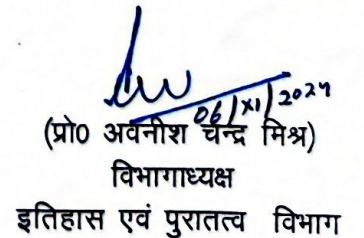 06/XI/2024
(प्रो0 अवनीश चन्द्र मिश्र)
विभागाध्यक्ष
इतिहास एवं पुरातत्व विभाग